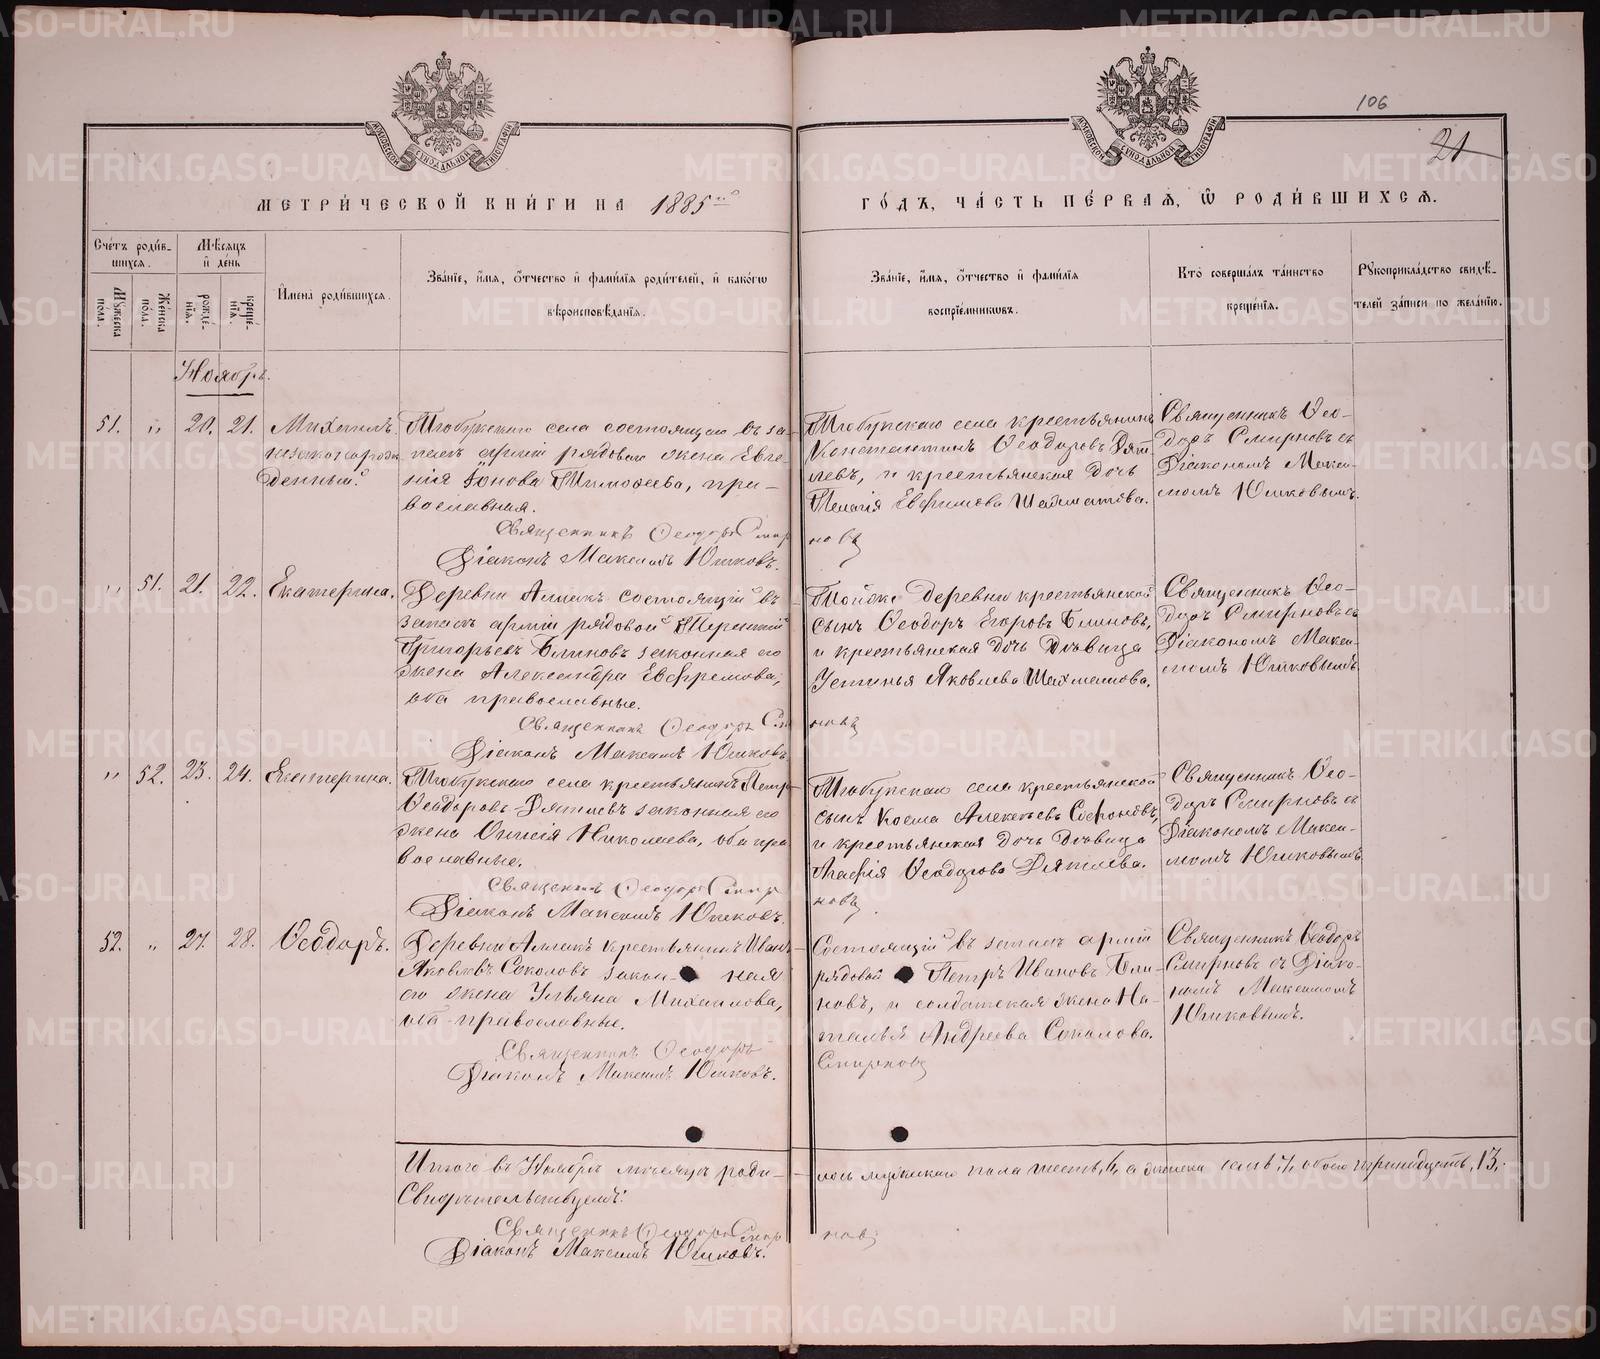 106
21
МОСКОВСКОЙ СѴНОДАЛЬНОЙ ТИПОГРАФІИ
МОСКОВСКОЙ СѴНОДАЛЬНОЙ ТИПОГРАФІИ
МЕТРИ́ЧЕСКОЙ КНИ́ГИ НА 1885й
ГО́ДЪ, ЧА́СТЬ ПЕ́РВАЯ, Ѿ РОДИ́ВШИХСЯ.
Сче́тъ роди́в-
шихся.
Му́жеска пола.
Же́нска пола.
Мѣ́сяцъ
и де́нь
рожде́-
нїя.
креще́-
нїя.
Имена̀ роди́вшихся.
Зва́нїе, и́мя, о́тчество и фами́лїя роди́телей, и како́гѡ
вѣроисповѣ́данїя.
Зва́нїе, и́мя, о́тчество и фами́лїя
воспрїе́мникѡвъ.
Кто̀ соверша́лъ та́инство
креще́нїя.
Рꙋкоприкла́дство свидѣ́-
телей за́писи по жела́нїю.
Ноябрь.
51. „ 20. 21. Михаилъ
незаконорож
денный.
села состоящаго въ за-
пасѣ арміи рядоваго жена Евге-
нія Іонова Тимофеева, пра-
вославная.
Священникъ Ѳеодоръ Смир
новъ
Діаконъ Максимъ Юшковъ.
села крестьянинъ
Константинъ Ѳеодоровъ Дят-
левъ, и крестьянская дочь
Пелагія Евфимова Шахматова.
Священникъ Ѳео-
доръ Смирновъ съ
Діакономъ Макси-
момъ Юшковымъ.
„ 51. 21. 22. Екатерина.
Деревни состоящій въ
запасѣ арміи рядовой Терентій
Григорьевъ Блиновъ законная его
жена Александра Евфремова,
оба православные.
Священникъ Ѳеодоръ См
новъ
Діаконъ Максимъ Юшковъ.
деревни крестьянской
сынъ Ѳеодоръ Егоровъ Блиновъ,
и крестьянская дочь Дѣвица
Устинья Яковлева Шахматова.
Священникъ Ѳео-
доръ Смирновъ съ
Діакономъ Макси-
момъ Юшковымъ.
„ 52. 23. 24. Екатерина.
села крестьянинъ Петръ
Ѳеодоровъ Дятлевъ законная его
жена Анисія Николаева, оба пра
вославные.
Священникъ Ѳеодоръ Смир
новъ
Діаконъ Максимъ Юшковъ.
села крестьянской
сынъ Косма Алексѣевъ Сафоновъ,
и крестьянская дочь Дѣвица
Агафія Ѳеодорова Дятлева.
Священникъ Ѳео-
доръ Смирновъ съ
Діакономъ Макси-
момъ Юшковымъ.
52. „ 27. 28. Ѳеодоръ.
Деревни крестьянинъ Иванъ
Яковлевъ Соколовъ закон- ная
его жена Ульяна Михаилова,
оба православные.
Священникъ Ѳеодоръ
Смирновъ
Діаконъ Максимъ Юшковъ.
Состоящій въ запасѣ арміи
рядовой Петръ Ивановъ Бли-
новъ, и солдатская жена На-
талья Андреева Соколова.
Священникъ Ѳеодоръ
Смирновъ съ Діако-
номъ Максимомъ
Юшковымъ.
Итого въ Ноябрѣ мѣсяцѣ роди-
лось мужескаго пола шесть, 6, а женска семь 7, обоего тринадцать, 13.
Свидѣтельствуемъ:
Священникъ Ѳеодоръ Смир
новъ
Діаконъ Максимъ Юшковъ.
METRIKI.GASO-URAL.RU